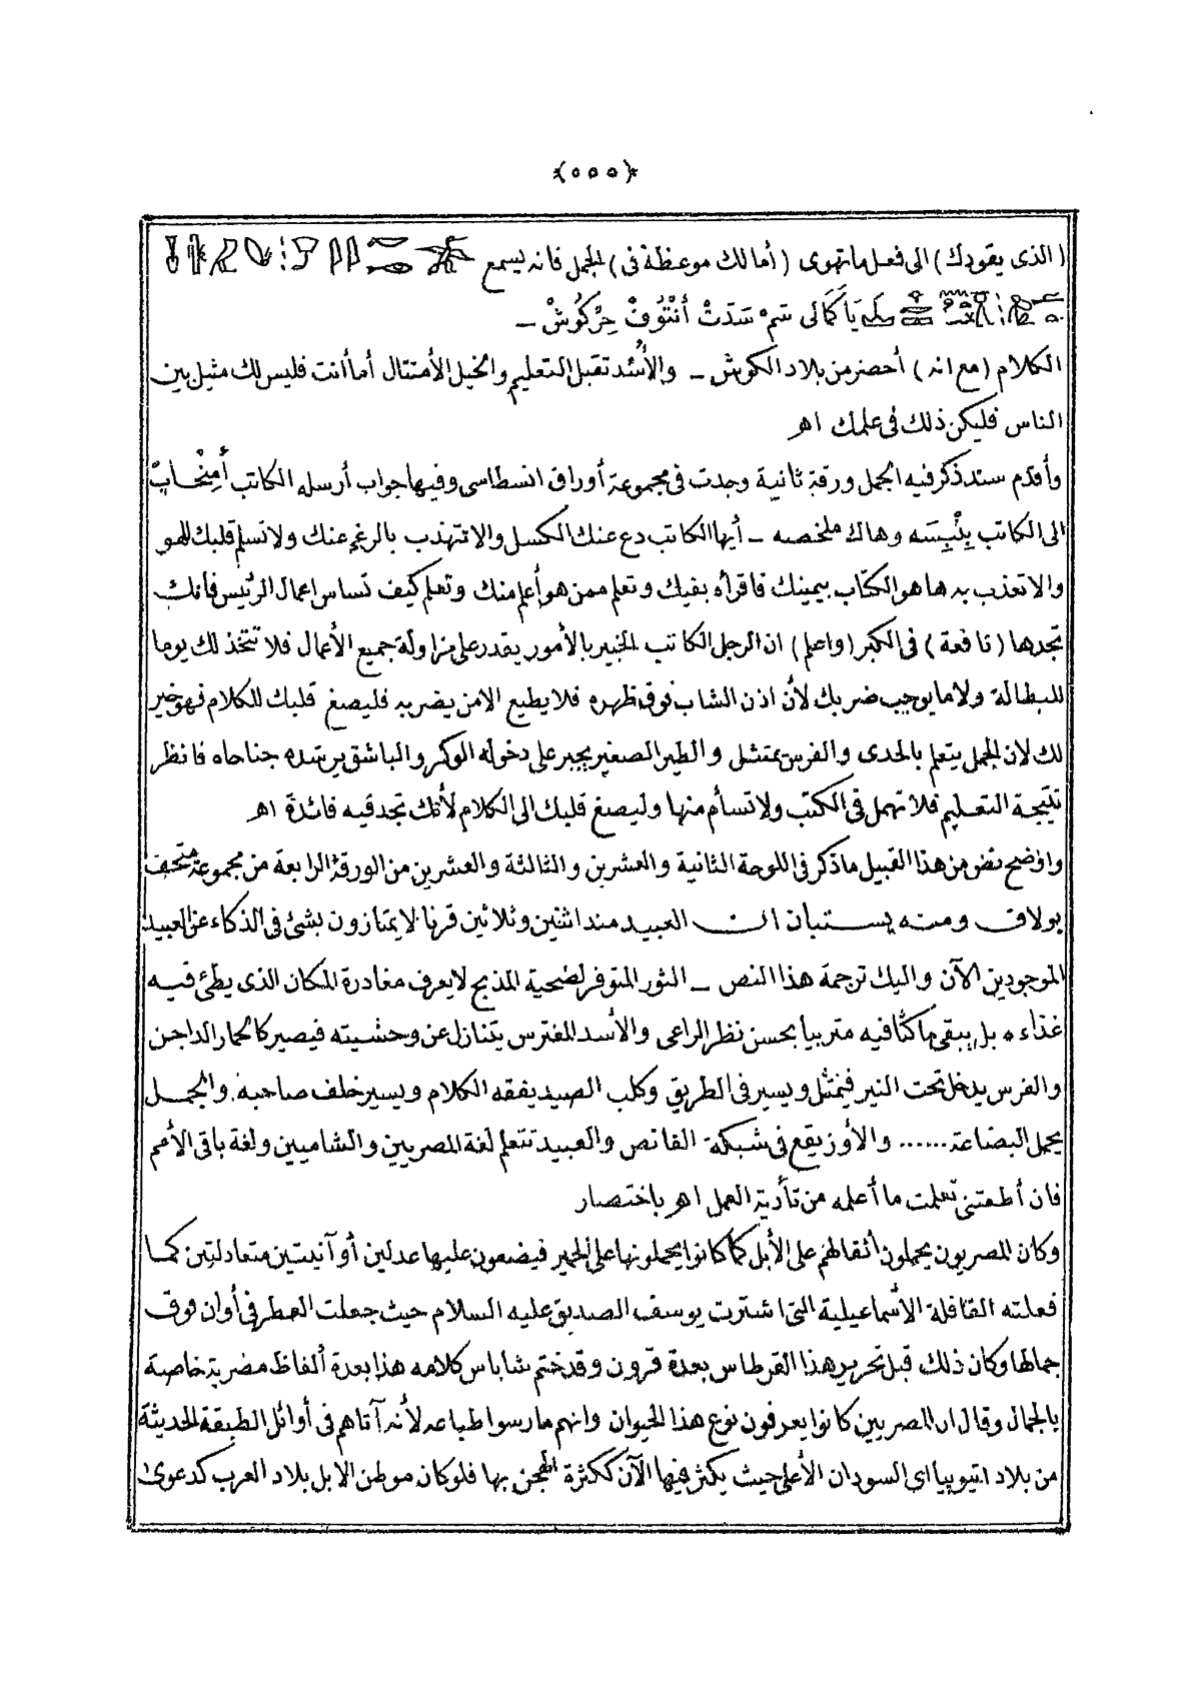 ﴿٥٥٥﴾
(الذى يقودك) الى فعل ماتهوى (أمالك موعظة فى) الجمل فانه يسمع
يَاكَمَالى سَمْ سَدَتْ أَنْتُوُفْ حِرْكُوُشْ –
الكلام (مع انه) أحضر من بلاد الكوش – والأُسُد تقبل التعليم والخيل الأمتثال أما أنت فليس لك مثيل بين
الناس فليكن ذلك فى علمك اهـ
وأقدم سند ذكر فيه الجمل ورقة ثانية وجدت فى مجموعة أوراق انسطاسى وفيها جواب أرسله الكاتب أَمِنْحَابْ
الى الكاتب بِنْبِسَه وهاك ملخصه – أيها الكاتب دع عنك الكسل والا تهذب بالرغم عنك ولا تسلم قلبك للهو
والا تعذب به ها هو الكتاب بيمينك فاقرأه بفيك وتعلم ممن هو أعلم منك وتعلم كيف تساس اعمال الرئيس فانك
تجدها (نافعة) فى الكبر (واعلم) ان الرجل الكاتب الخبير بالأمور يقدر على مزاولة جميع الأعمال فلا تتخذ لك يوما
للبطالة ولا ما يوجب ضربك لأن اذن الشاب فوق ظهره فلا يطيع الا من يضربه فليصغ قلبك للكلام فهو خير
لك لان الجمل يتعلم بالحدى والفرس يتمثل والطير الصغير يجبر على دخوله الوكر والباشق يرشده جناحاه فانظر
نتيجة التعليم فلا تهمل فى الكتب ولا تسأم منها وليصغ قلبك الى الكلام لأنك تجد فيه فائدة اهـ
واوضح نص من هذا القبيل ما ذكر فى اللوحة الثانية والعشرين والثالثة والعشرين من الورقة الرابعة من مجموعة متحف
بولاق ومنه يستبان ان العبيد منذ اثنين وثلاثين قرنا لا يمتازون بشئ فى الذكاء عن العبيد
الموجودين الآن واليك ترجمة هذا النص – الثور المتوفر لضحية المذبح لا يعرف مغادرة المكان الذى يطئ فيه
غذاءه بل يبقى ماكثا فيه متربيا بحسن نظر الراعى والأسد المفترس يتنازل عن وحشيته فيصير كالحمار الداجن
والفرس يدخل تحت النير فيتمثل ويسير فى الطريق وكلب الصيد يفقه الكلام ويسير خلف صاحبه والجمل
يحمل البضاعة...... والأوز يقع فى شبكة القانص والعبيد تتعلم لغة المصريين والشاميين ولغة باقى الأمم
فان أطعتنى تعلمت ما أعلمه من تأدية العمل اهـ باختصار
وكان المصريون يحملون أثقالهم على الأبل كما كانوا يحملونها على الحمير فيضعون عليها عدلين أو آنيتين متعادلتين كما
فعلته القافلة الأسماعيلية التى اشترت يوسف الصديق عليه السلام حيث جعلت العطر فى أوان فوق
جمالها وكان ذلك قبل تحرير هذا القرطاس بعدة قرون وقد ختم شاباس كلامه هذا بعدة ألفاظ مصرية خاصة
بالجمال وقال ان المصريين كانوا يعرفون نوع هذا الحيوان وانهم مارسوا طباعه لأنه آتاهم فى أوائل الطبقة الحديثة
من بلاد اتيوپيا اى السودان الأعلى حيث يكثر فيها الآن ككثرة الهجن بها فلو كان موطن الابل بلاد العرب كدعوى